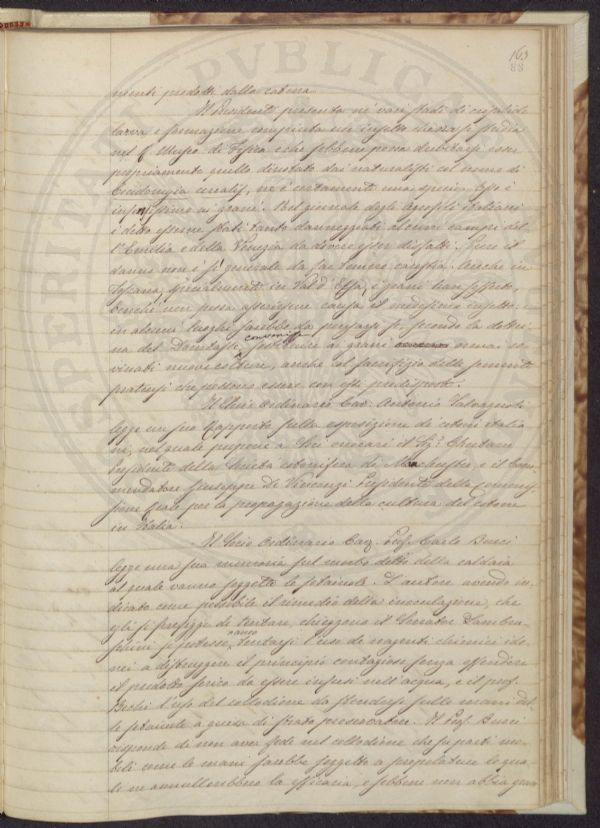 163
88
menti prodotti dalla catena
Il Presidente presenta ne' vari stadi di crisalide
larva e formazione compiuta un insetto che ora si studia
nel R. Museo di Fisica e che sebbene possa dubitarsi esser
propriamente quello dinotato dai naturalisti col nome di
Cecidomyia cerealis, ne è certamente una specie, e è
infestissimo ai grani. Nel giornale degli Agrofili italiani
è detto esserne stati tanto danneggiati alcuni campi del
l'Emilia e della Venezia da dovere esser disfatti. Pure il
danno non è sì generale da far temere carestia. Anche in
Toscana, specialmente in Val d'Elsa, i grani han sofferto,
benchè non possa assegnarsene causa il medesimo insetto: e
in alcuni luoghi sarebbe da pensarsi se, secondo la dottri
na del Dombasle, convenisse sostituire ai grani omai ro
vinati nuove colture, anche col sacrifizio delle sementi
pratensi che potessero essere con essi predisposte.
Il Socio Ordinario Cav. Antonio Salvagnoli
legge un suo Rapporto sulla esposizione di cotoni italia
ni, nel quale propone a Soci onorari il Sig. Cheetam
Presidente della Società cotonifera di Manchester, e il Com
mendatore Giuseppe De Vincenzi Presidente della commis
sione Reale per la propagazione della cultura del cotone
in Italia.
Il Socio Ordinario Cav. Prof. Carlo Burci
legge una sua memoria sul morbo detto della caldaia
al quale vanno soggette le setaiuole. L'autore avendo in
dicato come possibile il rimedio della inoculazione, che
egli si prefigge di tentare, chieggono il Senator Lambru
schini se potesse anco tentarsi l'uso de reagenti chimici ido
nei a distruggere il principio contagioso senza offendere
il prodotto serico da essere infusi nell'acqua, e il prof.
Bechi l'uso del collodione da stendersi sulle mani del
le setaiuole a guisa di strato preservatore. Il Prof. Burci
risponde di non aver fede nel collodione che su parti mo
bili come le mani sarebbe soggetto a screpolature le qua
li ne annullerebbero la efficacia, e sebbene non abbia gran